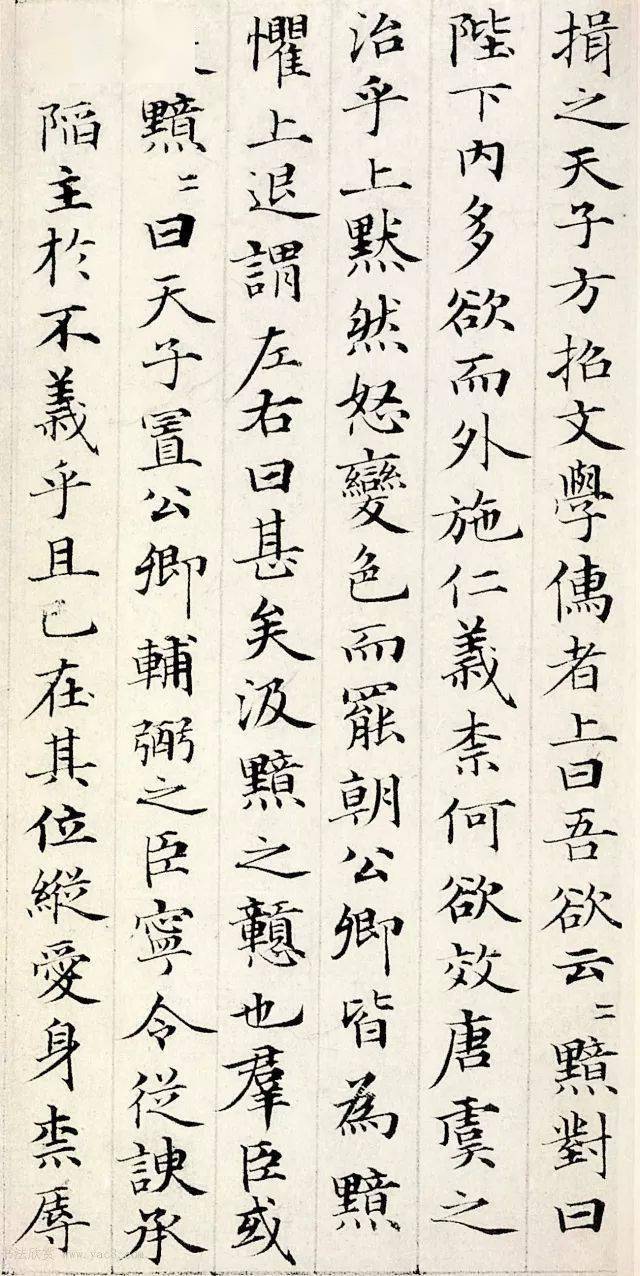 揖之天子方招文學儒者上曰吾欲云〻黯對曰
陛下內多欲而外施仁義柰何欲效唐虞之
治乎上黙然怒變色而罷朝公卿皆為黯
懼上退謂左右曰甚矣汲黯之戇也羣臣或
黯〻曰天子置公卿輔弼之臣寧令從諛承
陷主於不義乎且已在其位縱愛身柰辱
书法欣赏 www.yac8.com